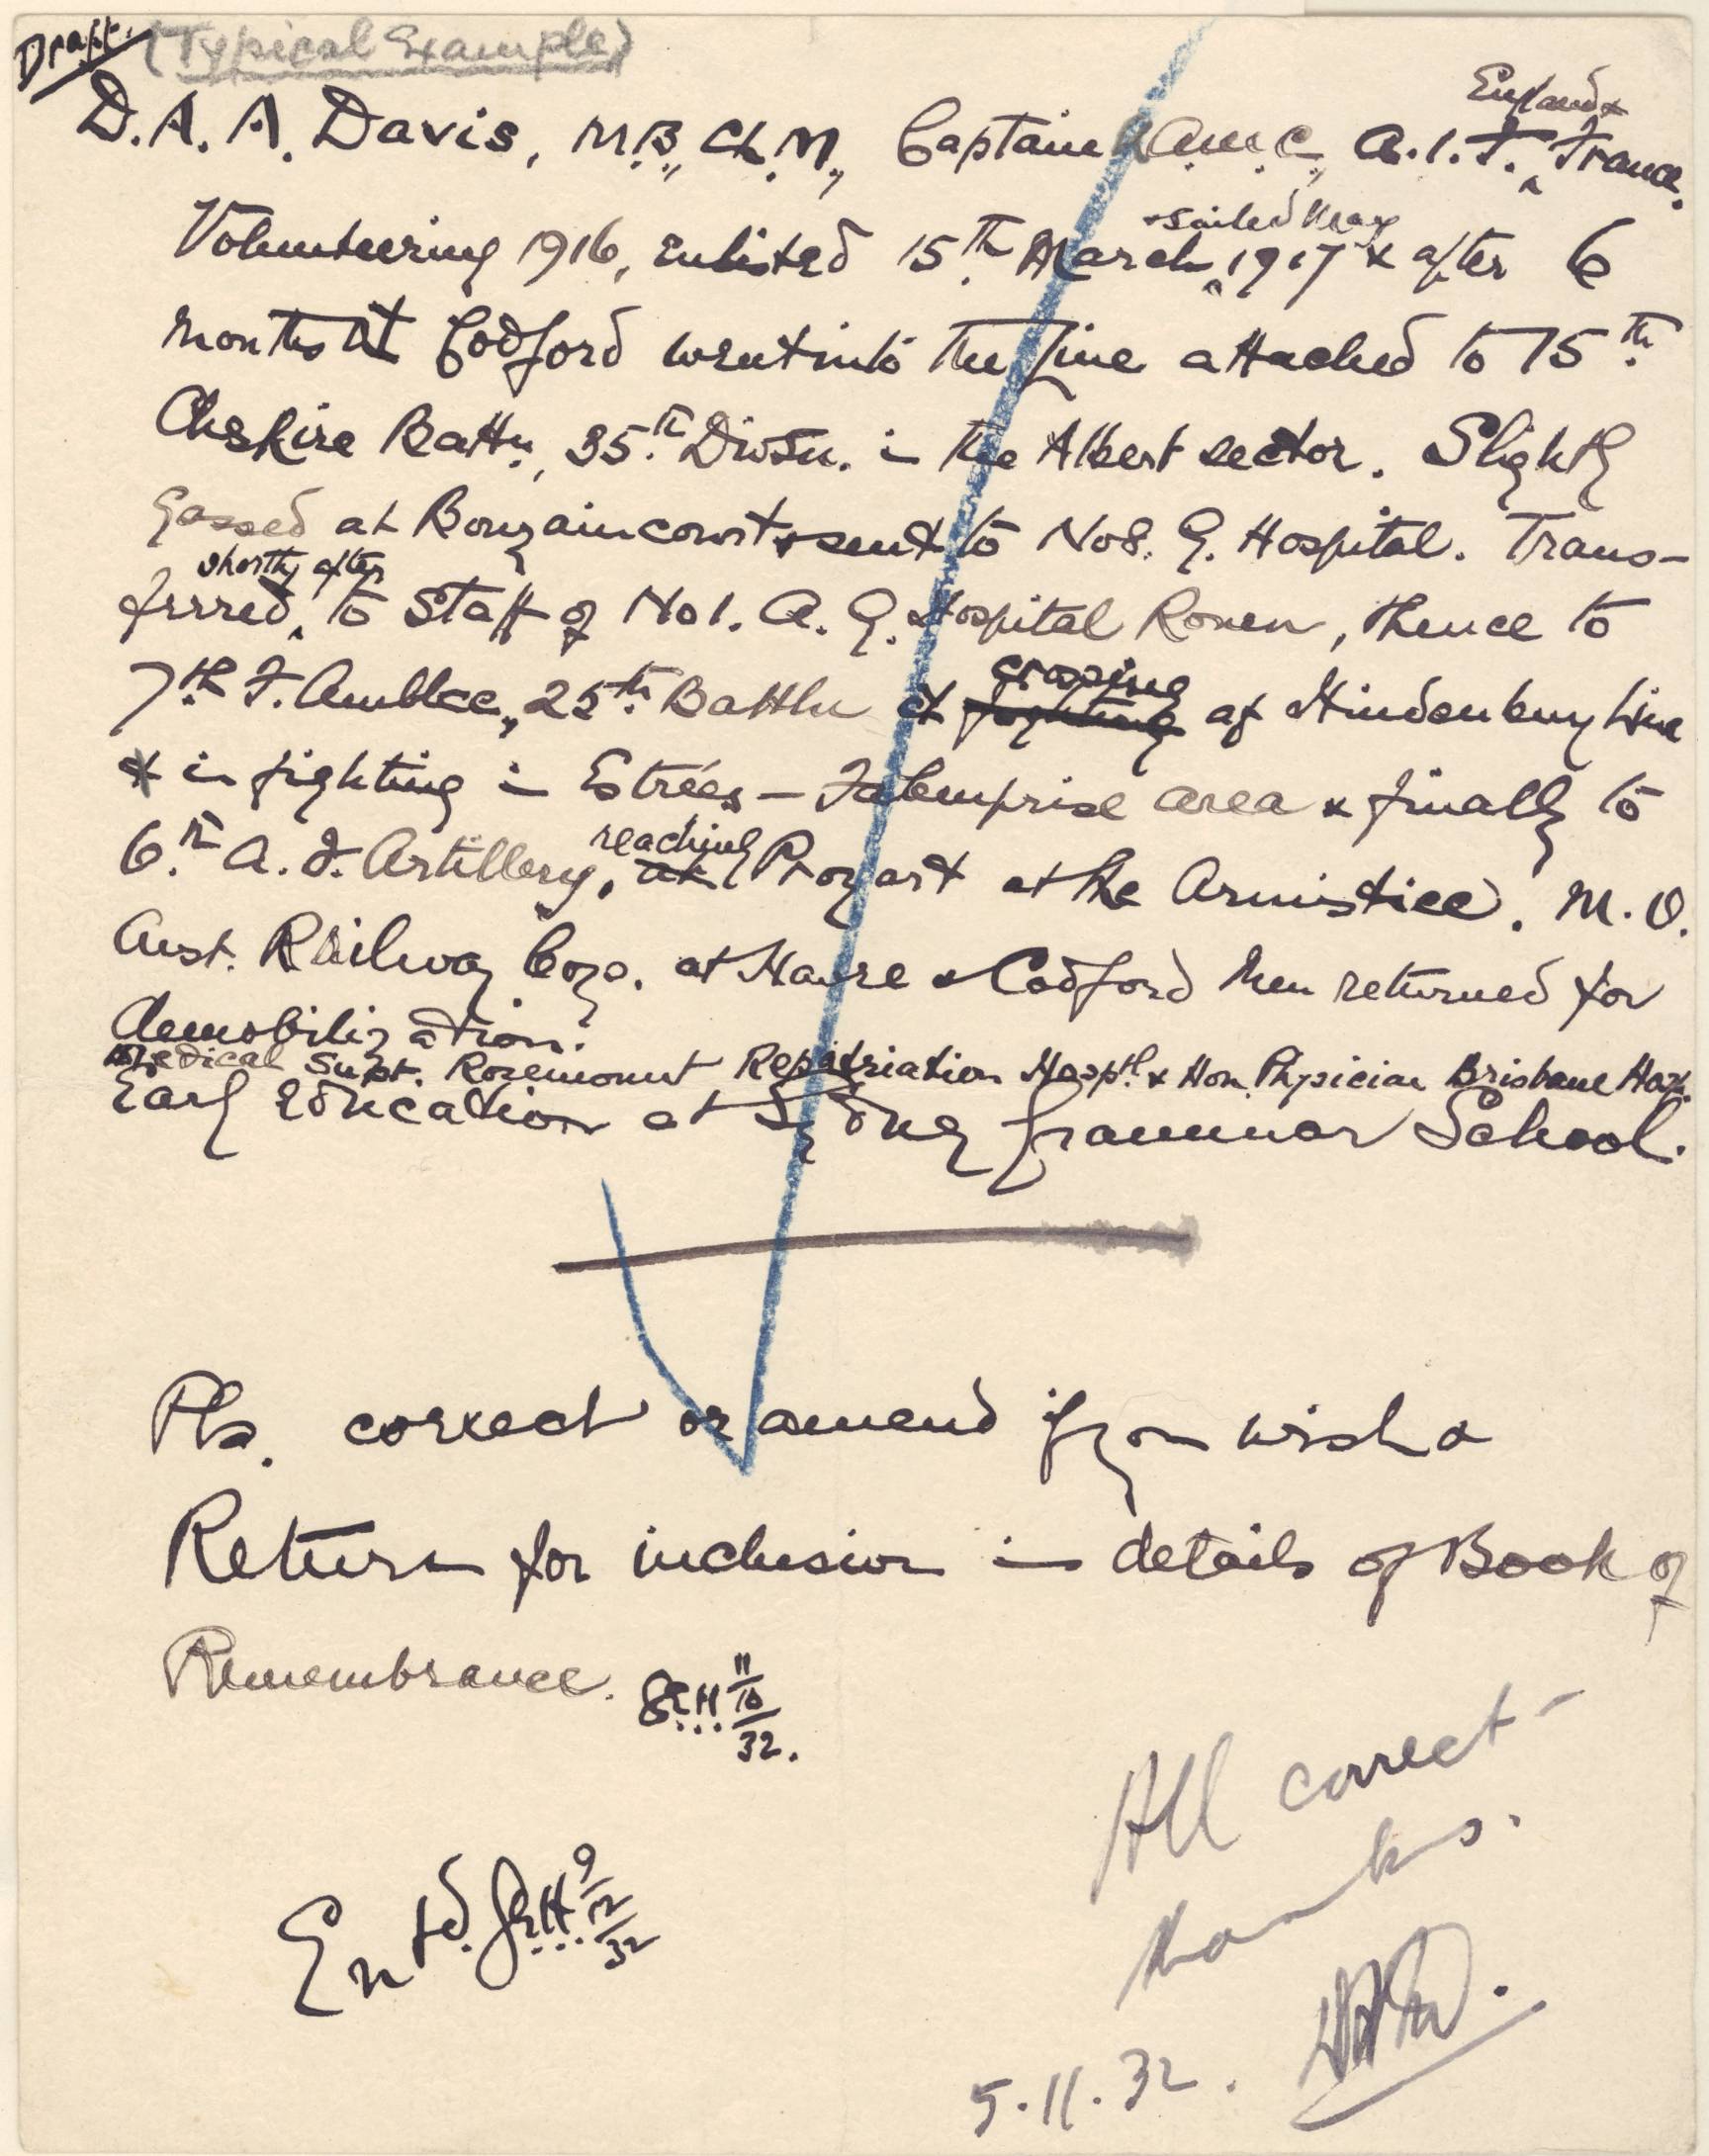 Draft. (Typical Example)
D. A. A. Davis, M.B., Ch. M., Captain A.A.M.C., A.I.F. England & France.
Volunteering 1916, enlisted 15th. March & sailed May 1917 & after 6
months at Codford went into the Line attached to 15th.
Cheshire Battn., 35th. Divsn. in the Albert sector. Slightly
gassed at Bouzaincourt & sent to No 8. G. Hospital. Trans-
ferred shortly after to Staff of No 1. A. G. Hospital Rouen, thence to
7th F. Amblce., 25th. Battln at fighting crossing of Hindenburg Line
& in fighting in Estrées - Jabemprise area & finally to
6th A. F. Artillery, at reaching Proyart at the Armistice. M. O.
Aust. Railway Coys. at Havre & Codford then returned for
demobilization.
Medical Supt. Rosemount Repatriation Hosptl & Hon. Physician Brisbane Hosp.
Early education at Sydney Grammar School.
Pls. correct or amend if you wish &
Return for inclusion in details of Book of
Remembrance. 11/10/32.
All correct -
thanks.
Entd. 9/12/32
5.11.32.